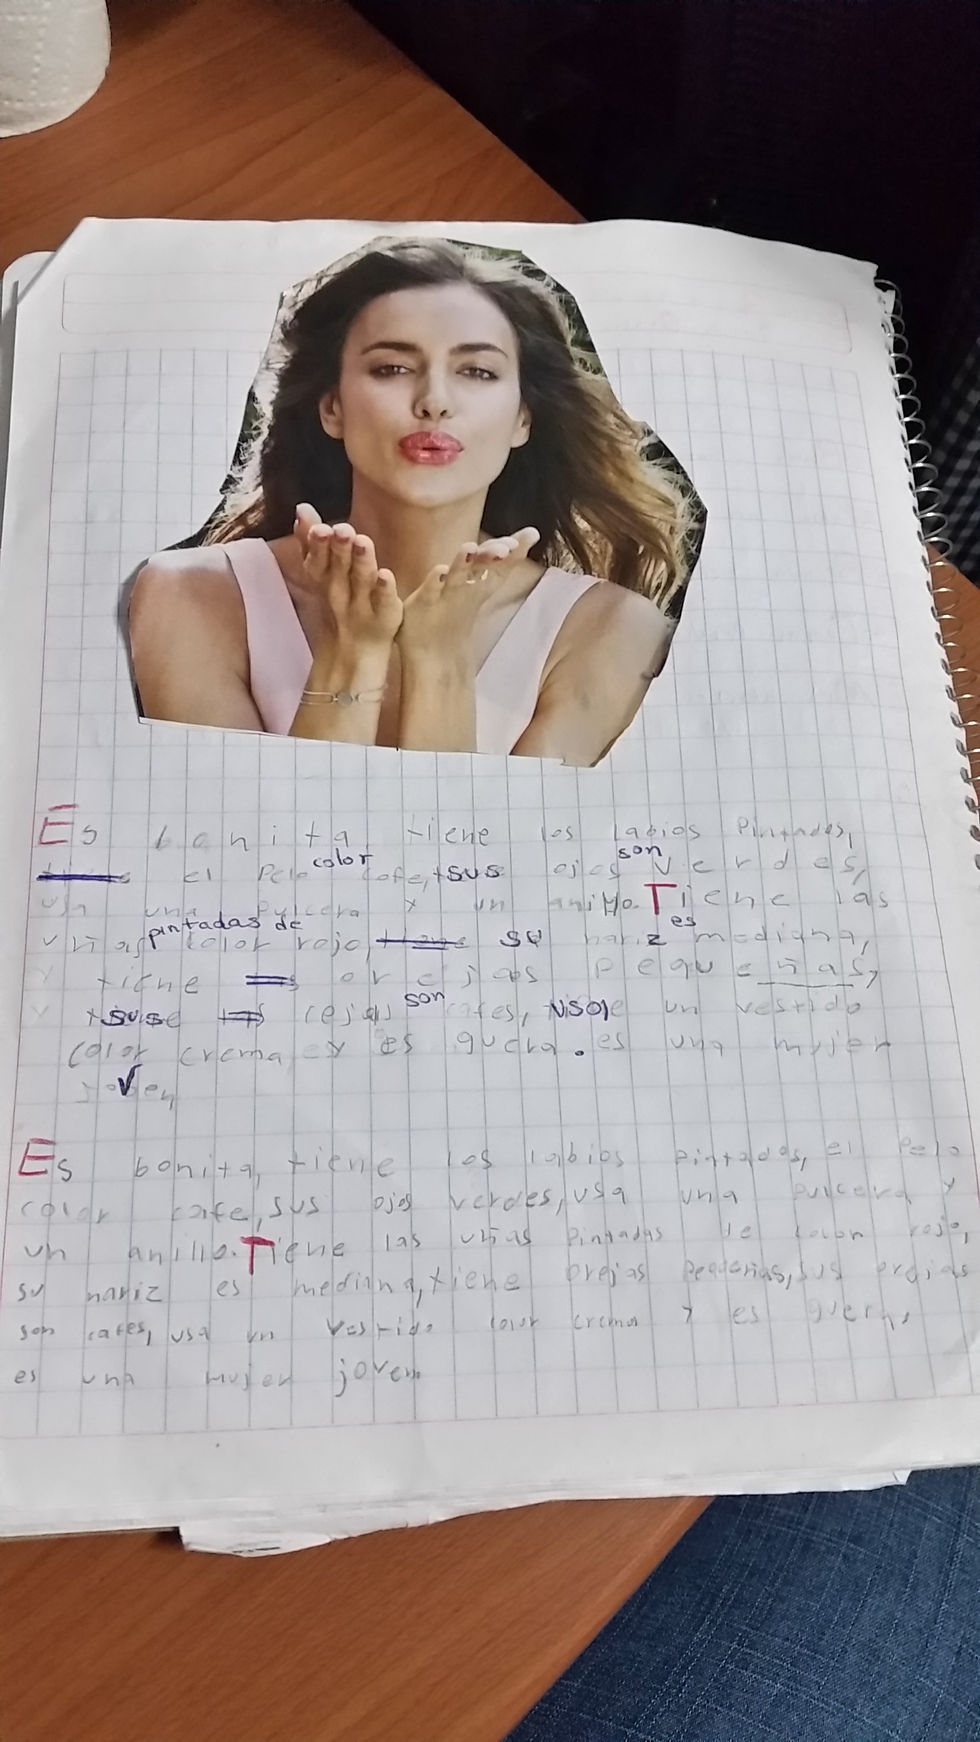 Es bonita tiene los labios Pintados,
el Pelo color cafe, sus ojos son verdes,
usa una pulcera y un anillo. Tiene las
uñas pintadas de color rojo, su nariz es mediana,
y tiene orejas Pequeñas,
y sus cejas son cafes, un vestido
color crema y es guera. es una mujer
joven
Es bonita, tiene los labios pintados, el Pelo
color cafe, sus ojos verdes, usa una pulcera y
un anillo. Tiene las uñas pintadas de color rojo,
su nariz es mediana, tiene orejas pequeñas, sus
son cafes, usa un vestido color crema y es guera,
es una mujer joven